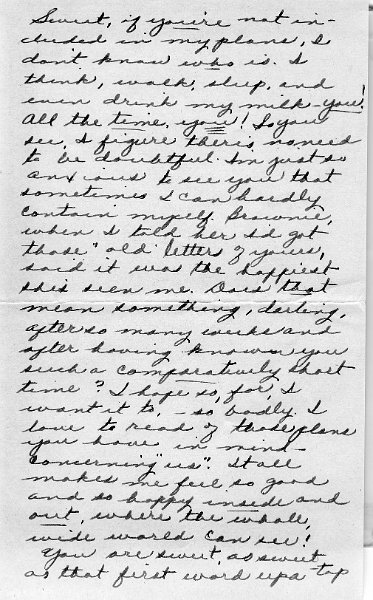 Sweet, if you're not in-
cluded in my plans, I
don't know who is. I
think, walk, sleep, and
even drink my milk - you!
All the time, you! So you
see, I figure there's no need
to be doubtful. I'm just so
anxious to see you that
sometimes I can hardly
contain myself. Brownie,
when I told her I'd got
those "old" letters of yours,
said it was the happiest
she's seen me. Does that
mean something, darling,
after so many weeks and
after having known you
such a comparatively short
time? I hope so, for, I
want it to, - so badly. I
love to read of those plans
you have in mind
concerning "us". It all
makes me feel so good
and so happy inside and
out, where the whole,
wide world can see!
You are sweet, as sweet
as that first word up a-top